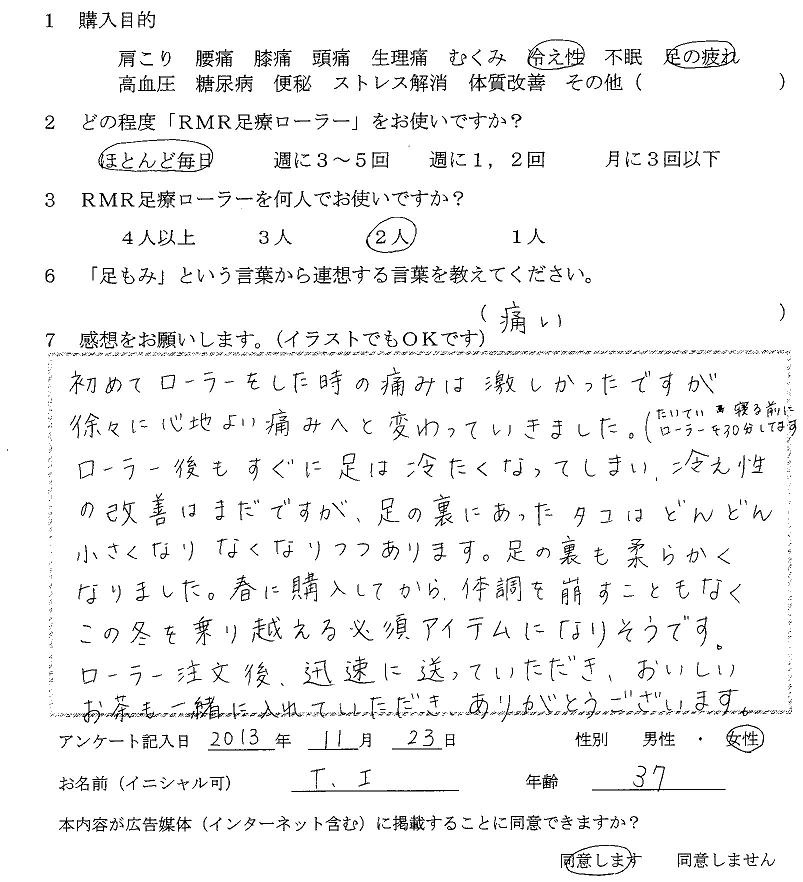 1 購入目的
肩こり 腰痛 膝痛 頭痛 生理痛 むくみ 冷え性 不眠 足の疲れ
高血圧 糖尿病 便秘 ストレス解消 体質改善 その他（ ）
2 どの程度「ＲＭＲ足療ローラー」をお使いですか？
ほとんど毎日 週に３～５回 週に１，２回 月に３回以下
3 ＲＭＲ足療ローラーを何人でお使いですか？
４人以上 ３人 ２人 １人
6 「足もみ」という言葉から連想する言葉を教えてください。
（ 痛い ）
7 感想をお願いします。（イラストでもＯＫです）
初めてローラーをした時の痛みは激しかったですが
徐々に心地よい痛みへと変わっていきました。（たいてい寝る前に
ローラーを30分してます
ローラー後もすぐに足は冷たくなってしまい、冷え性
の改善はまだですが、足の裏にあったタコはどんどん
小さくなりなくなりつつあります。足の裏も柔らかく
なりました。春に購入してから、体調を崩すこともなく
この冬を乗り越える必須アイテムになりそうです。
ローラー注文後、迅速に送っていただき、おいしい
お茶も一緒に入れていただき、ありがとうございます。
アンケート記入日 2013 年 11 月 23 日 性別 男性 ・ 女性
お名前（イニシャル可） T. I 年齢 37
本内容が広告媒体（インターネット含む）に掲載することに同意できますか？
同意します 同意しません